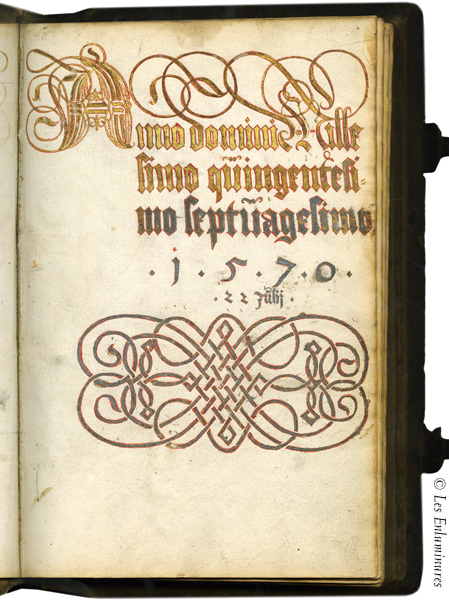 Anno domini Mille
simo quingentesi-
mo septuagesimo
· 1 · 5 · 7 · 0 ·
· 22 Julij ·
© Les Enluminures